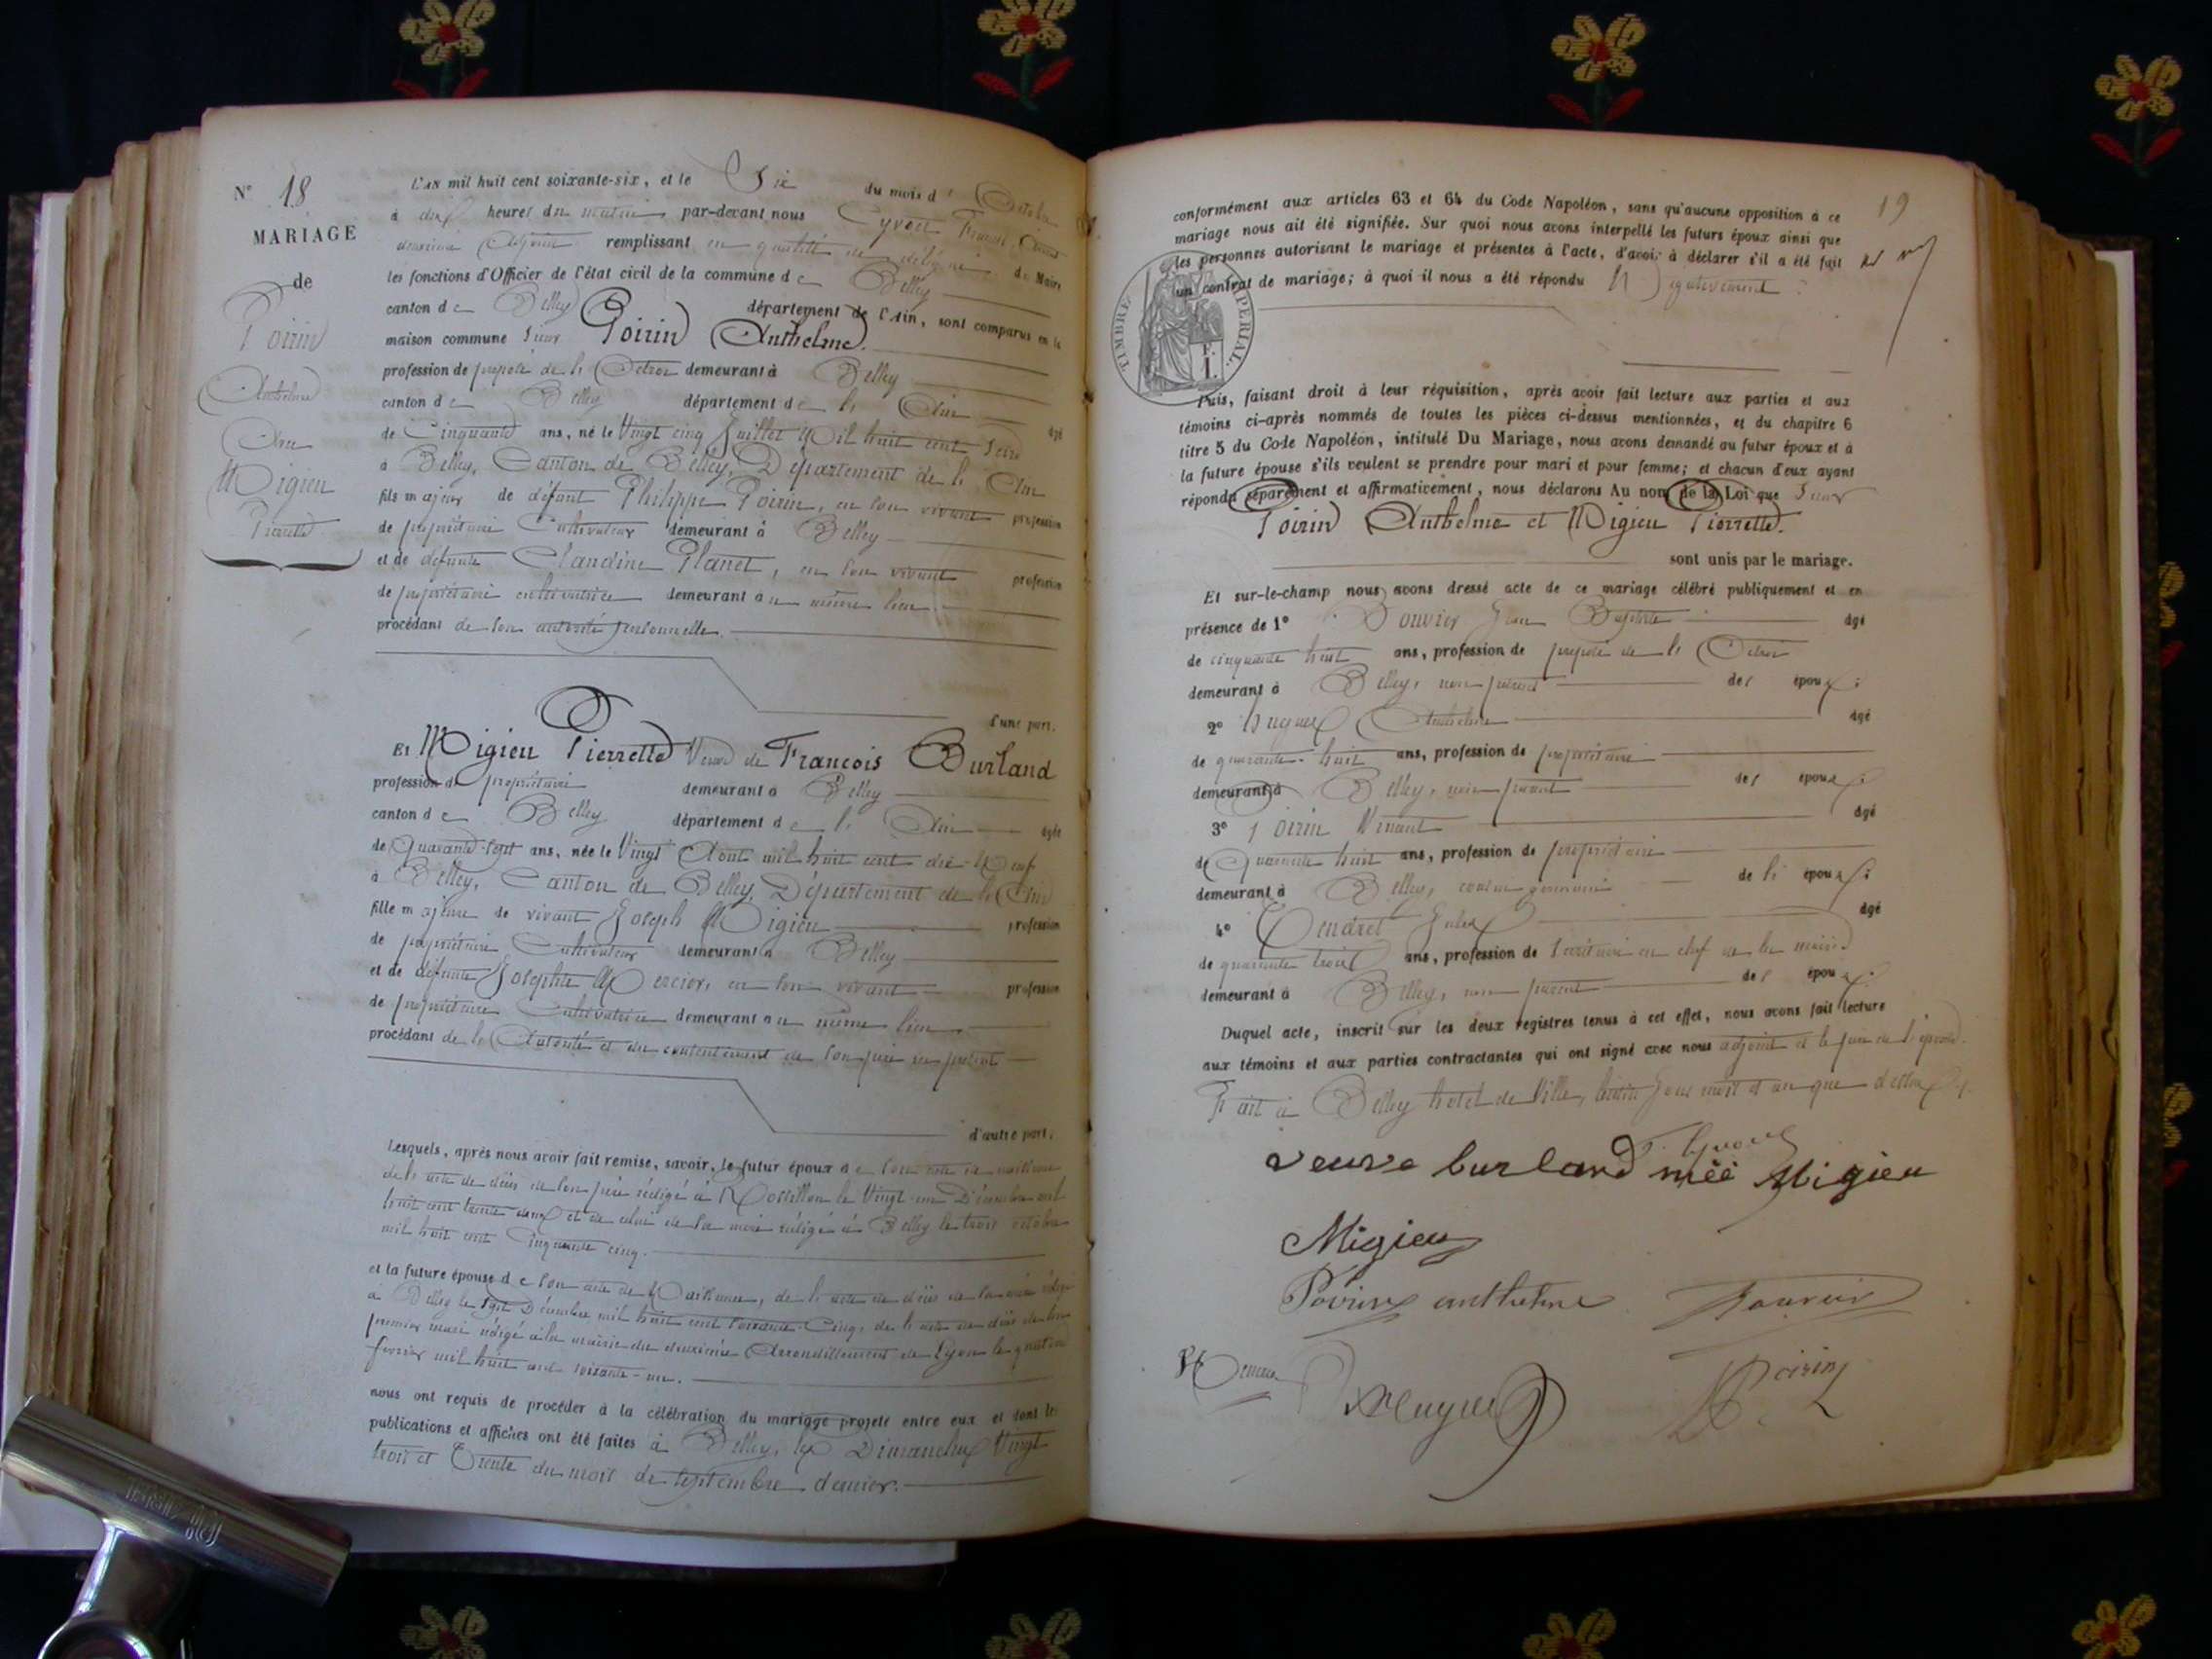 N° 18
MARIAGE
de
Poirin
Anthelme
Avec
Migieu
Pierrette
L'AN mil huit cent soixante-six, et le Six du mois d'Octobre
à dix heures du matin par-devant nous
deuxième Adjoint remplissant en qualité de délégué du Maire
les fonctions d'Officier de l'état civil de la commune de Belley
canton de Belley département de l'Ain, sont comparus en la
maison commune Sieur Poirin Anthelme.
profession de préposé de l'Octroi demeurant à Belley
canton de Belley département de l'Ain âgé
de Cinquante ans, né le Vingt cinq Juillet Mil huit cent Seize
à Belley, Canton de Belley, Département de l'Ain
fils majeur de défunt Philippe Poirin, en son vivant profession
de propriétaire Cultivateur demeurant à Belley
et de défunte Claudine Planet, en son vivant profession
de propriétaire cultivatrice demeurant au même lieu.
procédant de son autorité personnelle.
d'une part.
Et Migieu Pierrette Veuve de François Burland
profession de propriétaire demeurant à Belley
canton de Belley département de l'Ain âgée
de Quarante-sept ans, née le Vingt Août mil huit cent dix-Neuf
à Belley, Canton de Belley, Département de l'Ain
fille majeure de vivant Joseph Migieu profession
de propriétaire Cultivateur demeurant à Belley
et de défunte Josephte Mercier, en son vivant profession
de propriétaire Cultivatrice demeurant au même lieu
procédant de l'Autorité et du consentement de son père ici présent
d'autre part.
Lesquels, après nous avoir fait remise, savoir, le futur époux de son acte de naissance
de l'acte de décès de son père rédigé à Rossillon le Vingt-un Décembre mil
huit cent trente deux et de celui de sa mère rédigé à Belley le trois octobre
mil huit cent Cinquante cinq.
et la future épouse de son acte de Naissance, de l'acte de décès de sa mère rédigé
à Belley le Sept Décembre mil huit cent soixante-Cinq, de l'acte de décès de son
premier mari rédigé à la mairie du deuxième Arrondissement de Lyon le quatre
février mil huit cent soixante-un.
nous ont requis de procéder à la célébration du mariage projeté entre eux et dont les
publications et affiches ont été faites à Belley, les Dimanches Vingt
trois et Trente du mois de Septembre dernier.
19
conformément aux articles 63 et 64 du Code Napoléon, sans qu'aucune opposition à ce
mariage nous ait été signifiée. Sur quoi nous avons interpellé les futurs époux ainsi que
les personnes autorisant le mariage et présentes à l'acte, d'avoir à déclarer s'il a été fait
un contrat de mariage; à quoi il nous a été répondu Négativement.
TIMBRE IMPERIAL
Puis, faisant droit à leur réquisition, après avoir fait lecture aux parties et aux
témoins ci-après nommés de toutes les pièces ci-dessus mentionnées, et du chapitre 6
titre 5 du Code Napoléon, intitulé Du Mariage, nous avons demandé au futur époux et à
la future épouse s'ils veulent se prendre pour mari et pour femme; et chacun d'eux ayant
répondu séparément et affirmativement, nous déclarons Au nom de la Loi que Sieur
Poirin Anthelme et Migieu Pierrette.
sont unis par le mariage.
Et sur-le-champ nous avons dressé acte de ce mariage célébré publiquement et en
présence de 1° Bouvier Jean Baptiste âgé
de cinquante huit ans, profession de préposé de l'Octroi
demeurant à Belley, non parent des époux;
2° Hugues Anthelme âgé
de quarante-huit ans, profession de propriétaire
demeurant à Belley, non parent des époux;
3° Poirin Vincent âgé
de Quarante huit ans, profession de propriétaire
demeurant à Belley, cousin germain de l'époux;
4° Dendret Jules âgé
de quarante trois ans, profession de Secrétaire en chef de la mairie
demeurant à Belley, non parent des époux.
Duquel acte, inscrit sur les deux registres tenus à cet effet, nous avons fait lecture
aux témoins et aux parties contractantes qui ont signé avec nous adjoint et le père de l'épouse.
Fait à Belley hotel de Ville, lesdits Jour mois et an que dessus
veuve burland néé Migieu
Migieu
Poirin anthelme
Bouvier
Hugues
Poirin